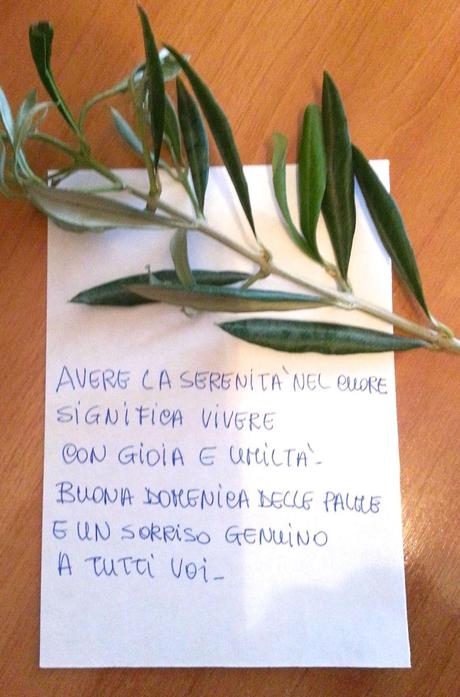 AVERE LA SERENITA' NEL CUORE
SIGNIFICA VIVERE
CON GIOIA E UMILTA'-
BUONA DOMENICA DELLE PALME
E UN SORRISO GENUINO
A TUTTI VOI-